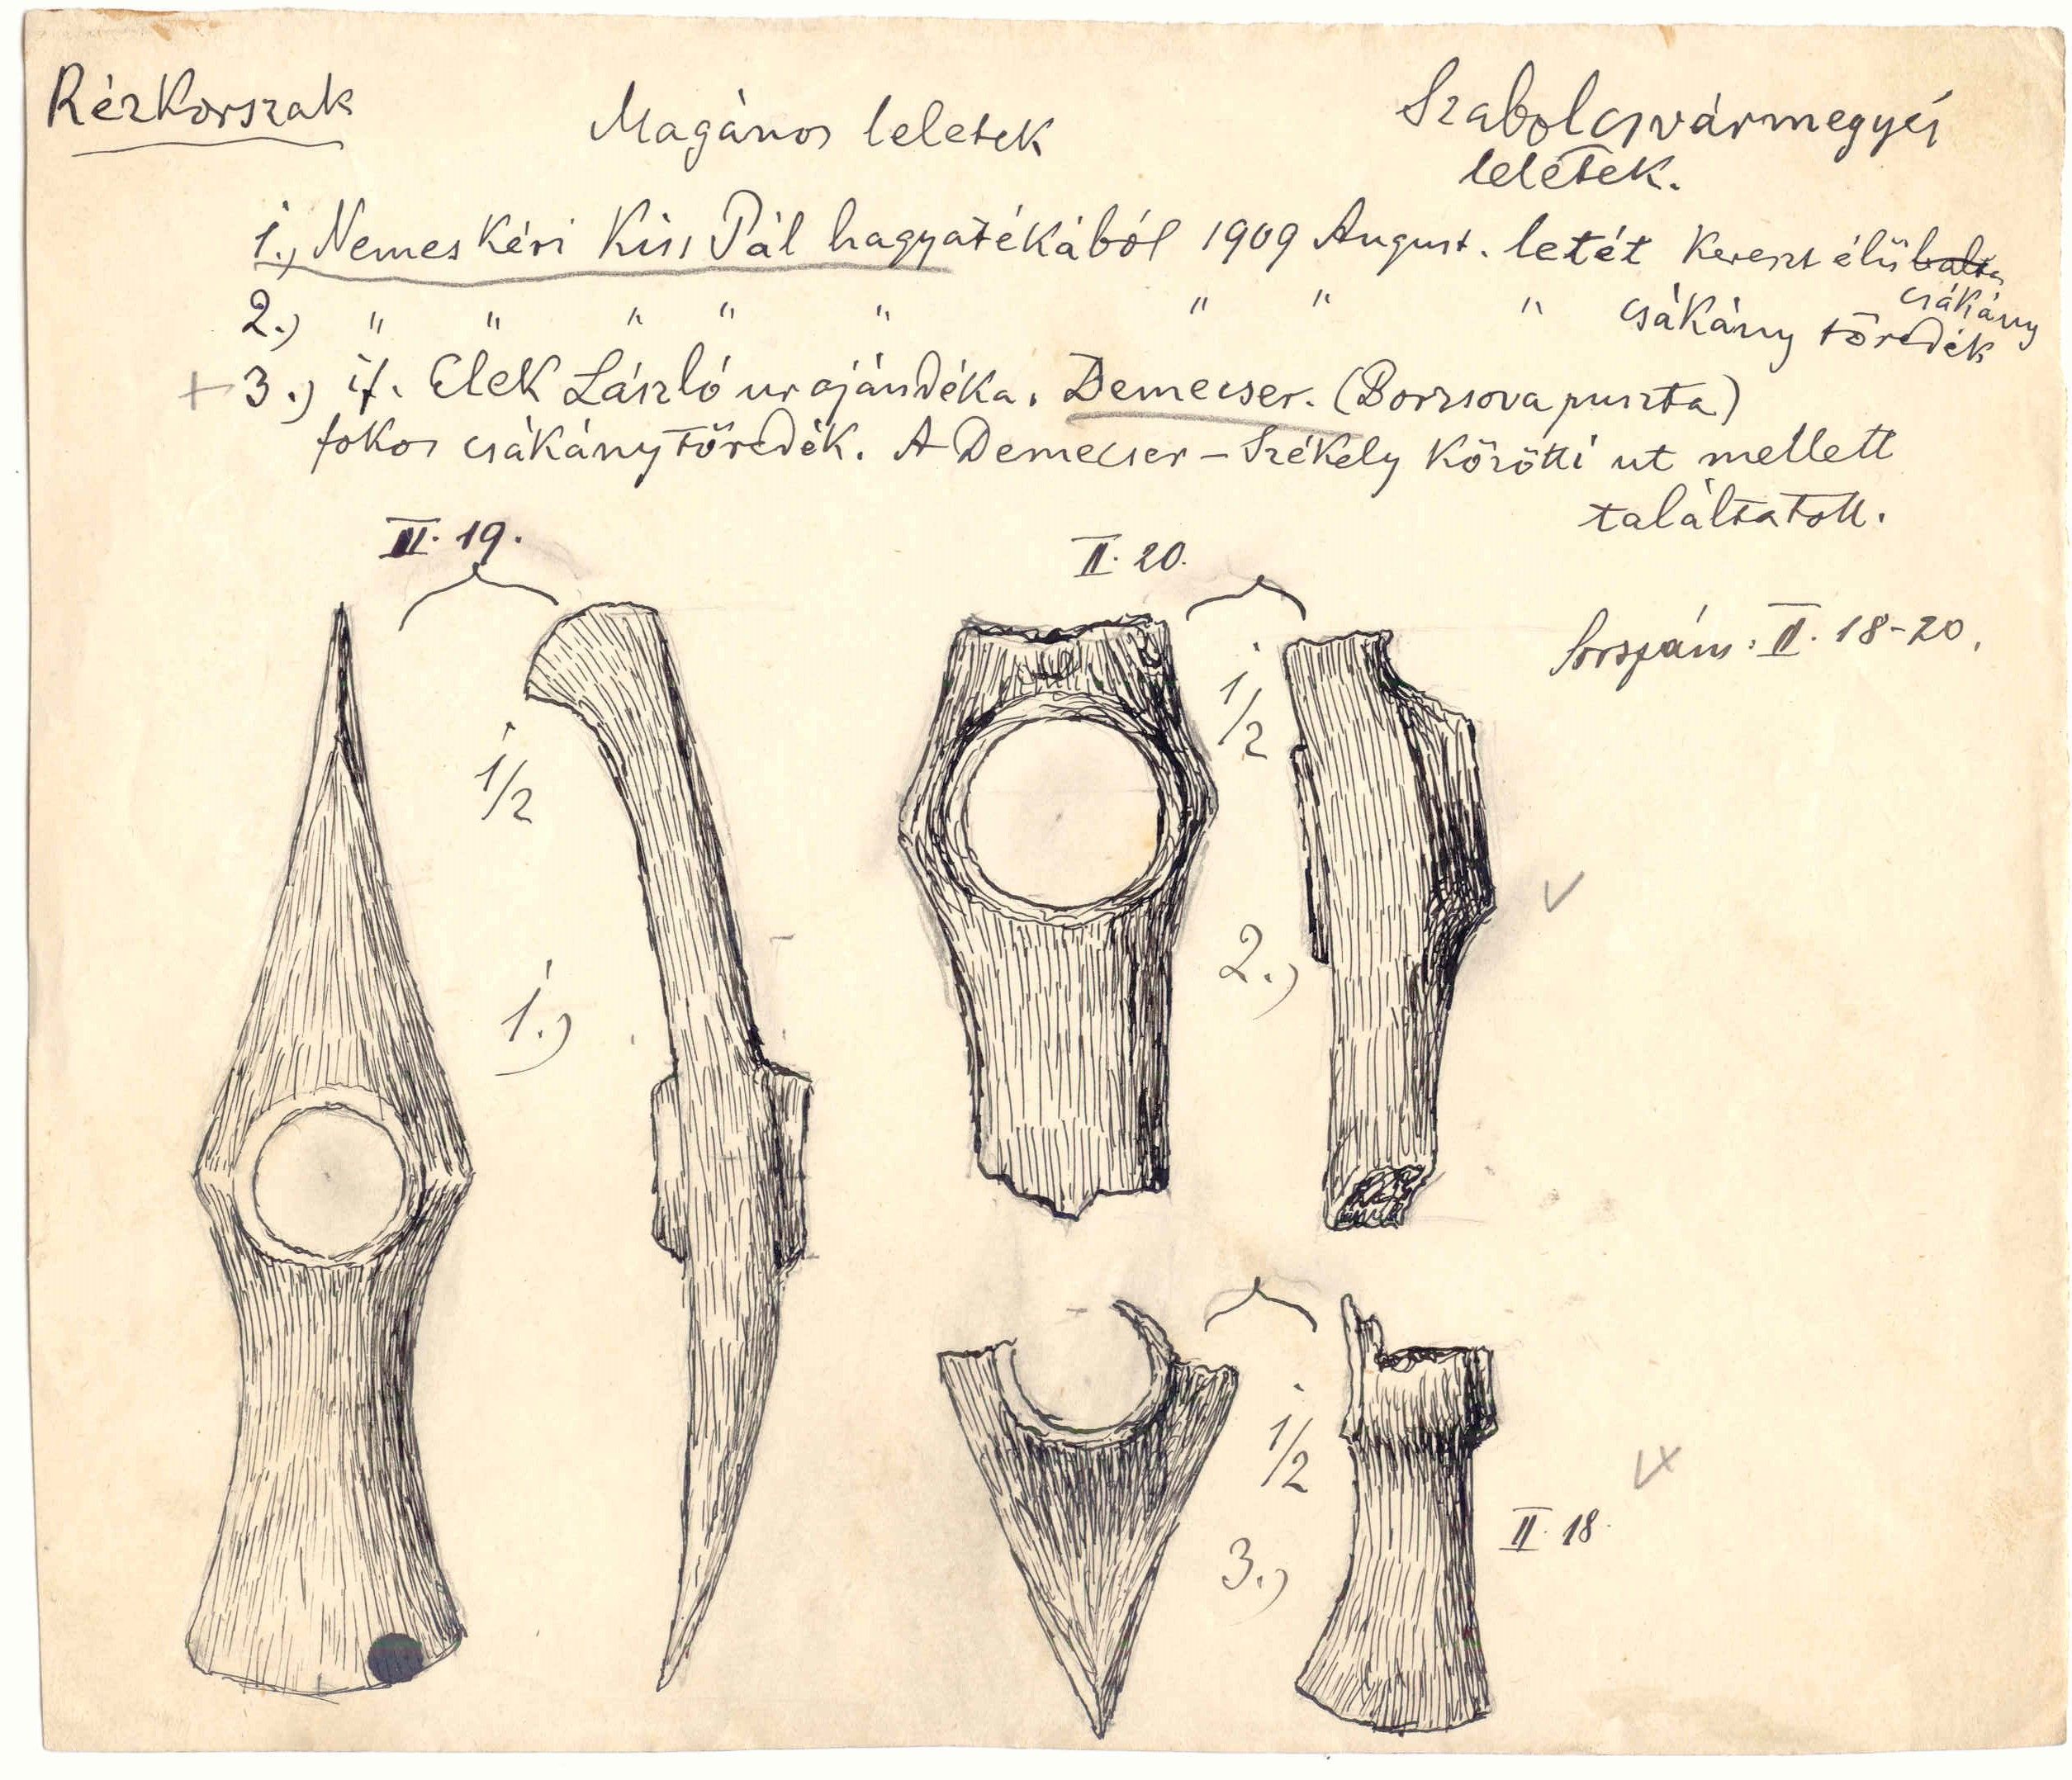 Rézkorszak
Magános leletek
Szabolcsvármegyei
leletek.
1.) Nemeskéri Kiss Pál hagyatékából 1909 August. letét Kereszt élü balta
csákány
2.) " " " " " " " " csákány töredék
+ 3.) if. Elek László ur ajándéka. Demecser. (Borzsova puszta)
fokos csákánytöredék. A Demecser - Székely közötti ut mellett
találtatott.
II. 19.
II. 20.
Sorszám: II. 18-20.
1/2
1/2
1.)
2.)
1/2
3.)
II. 18.